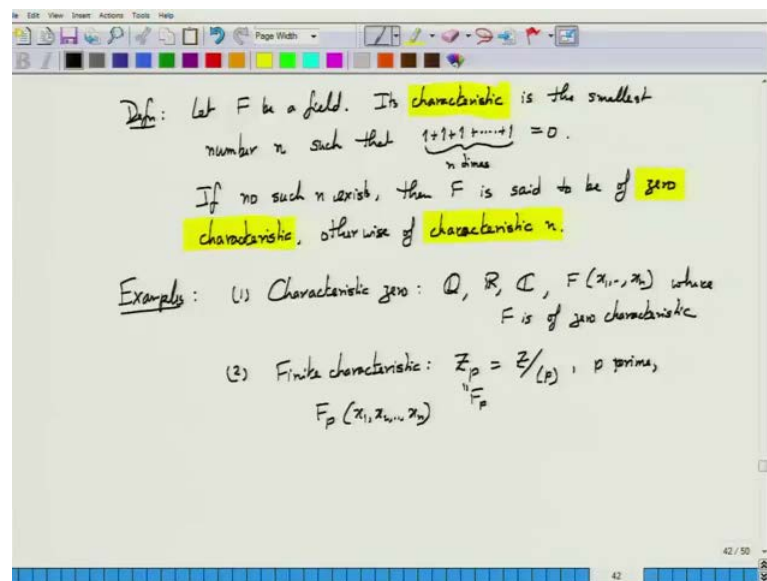 File Edit View Insert Actions Tools Help
Page Width
Defn: Let F be a field. Its characteristic is the smallest
number n such that 1+1+1+.....+1 = 0.
n times
If no such n exists, then F is said to be of zero
characteristic, otherwise of characteristic n.
Examples: (1) Characteristic zero: ℚ, ℝ, ℂ, F(x₁,..,xₙ) where
F is of zero characteristic
(2) Finite characteristic: ℤₚ = ℤ/(p), p prime,
"Fₚ
Fₚ(x₁,xₙ...xₙ)
42 / 50
42